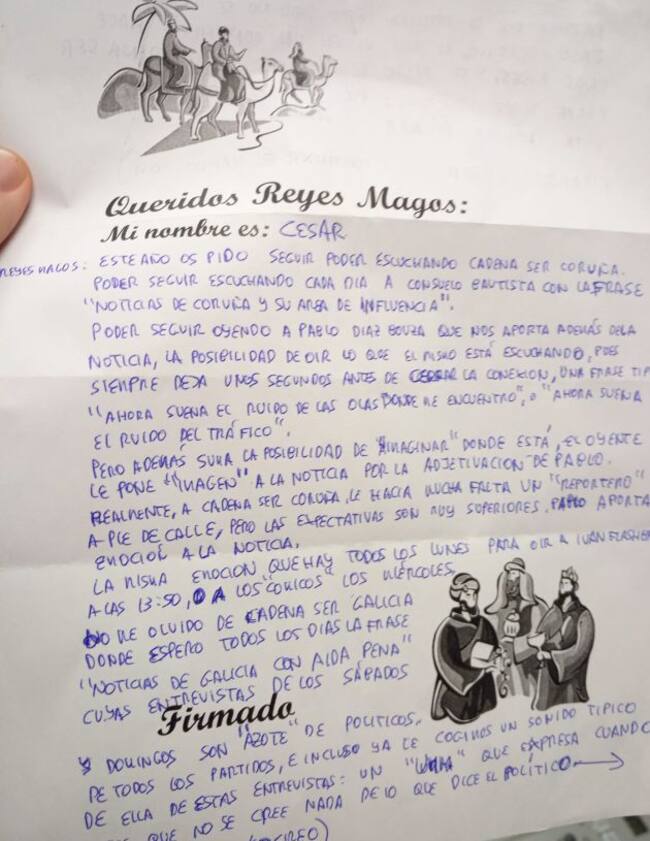 Queridos Reyes Magos:
Mi nombre es: CESAR
REYES MAGOS: ESTE AÑO OS PIDO SEGUIR PODER ESCUCHANDO CADENA SER CORUÑA.
PODER SEGUIR ESCUCHANDO CADA DIA A CONSUELO BAUTISTA CON LA FRASE
"NOTICIAS DE CORUÑA Y SU AREA DE INFLUENCIA".
PODER SEGUIR OYENDO A PABLO DIAZ BOUZA QUE NOS APORTA ADEMÁS DE LA
NOTICIA, LA POSIBILIDAD DE OIR LO QUE EL MISMO ESTÁ ESCUCHANDO, PUES
SIEMPRE DEJA UNOS SEGUNDOS ANTES DE CERRAR LA CONEXION, UNA FRASE TIP
"AHORA SUENA EL RUIDO DE LAS OLAS DONDE ME ENCUENTRO", O "AHORA SUENA
EL RUIDO DEL TRÁFICO".
PERO ADEMÁS SUMA LA POSIBILIDAD DE "IMAGINAR" DONDE ESTÁ, EL OYENTE
LE PONE "IMAGEN" A LA NOTICIA POR LA ADJETIVACION DE PABLO.
REALMENTE, A CADENA SER CORUÑA, LE HACIA MUCHA FALTA UN "REPORTERO"
A PIE DE CALLE, PERO LAS EXPECTATIVAS SON MUY SUPERIORES. PABLO APORTA
EMOCIÓN A LA NOTICIA.
LA MISMA EMOCION QUE HAY TODOS LOS LUNES PARA OIR A IVÁN FLASHER
A LAS 13:50, O A LOS "COMICOS" LOS MIÉRCOLES.
NO ME OLVIDO DE CADENA SER GALICIA
DONDE ESPERO TODOS LOS DIAS LA FRASE
"NOTICIAS DE GALICIA CON AIDA PENA"
CUYAS ENTREVISTAS DE LOS SÁBADOS
Firmado
Y DOMINGOS SON "AZOTE" DE POLITICOS,
DE TODOS LOS PARTIDOS, E INCLUSO YA LE COGIMOS UN SONIDO TIPICO
DE ELLA DE ESTAS ENTREVISTAS: UN QUE EXPRESA CUANDO
QUE NO SE CREE NADA DE LO QUE DICE EL POLÍTICO